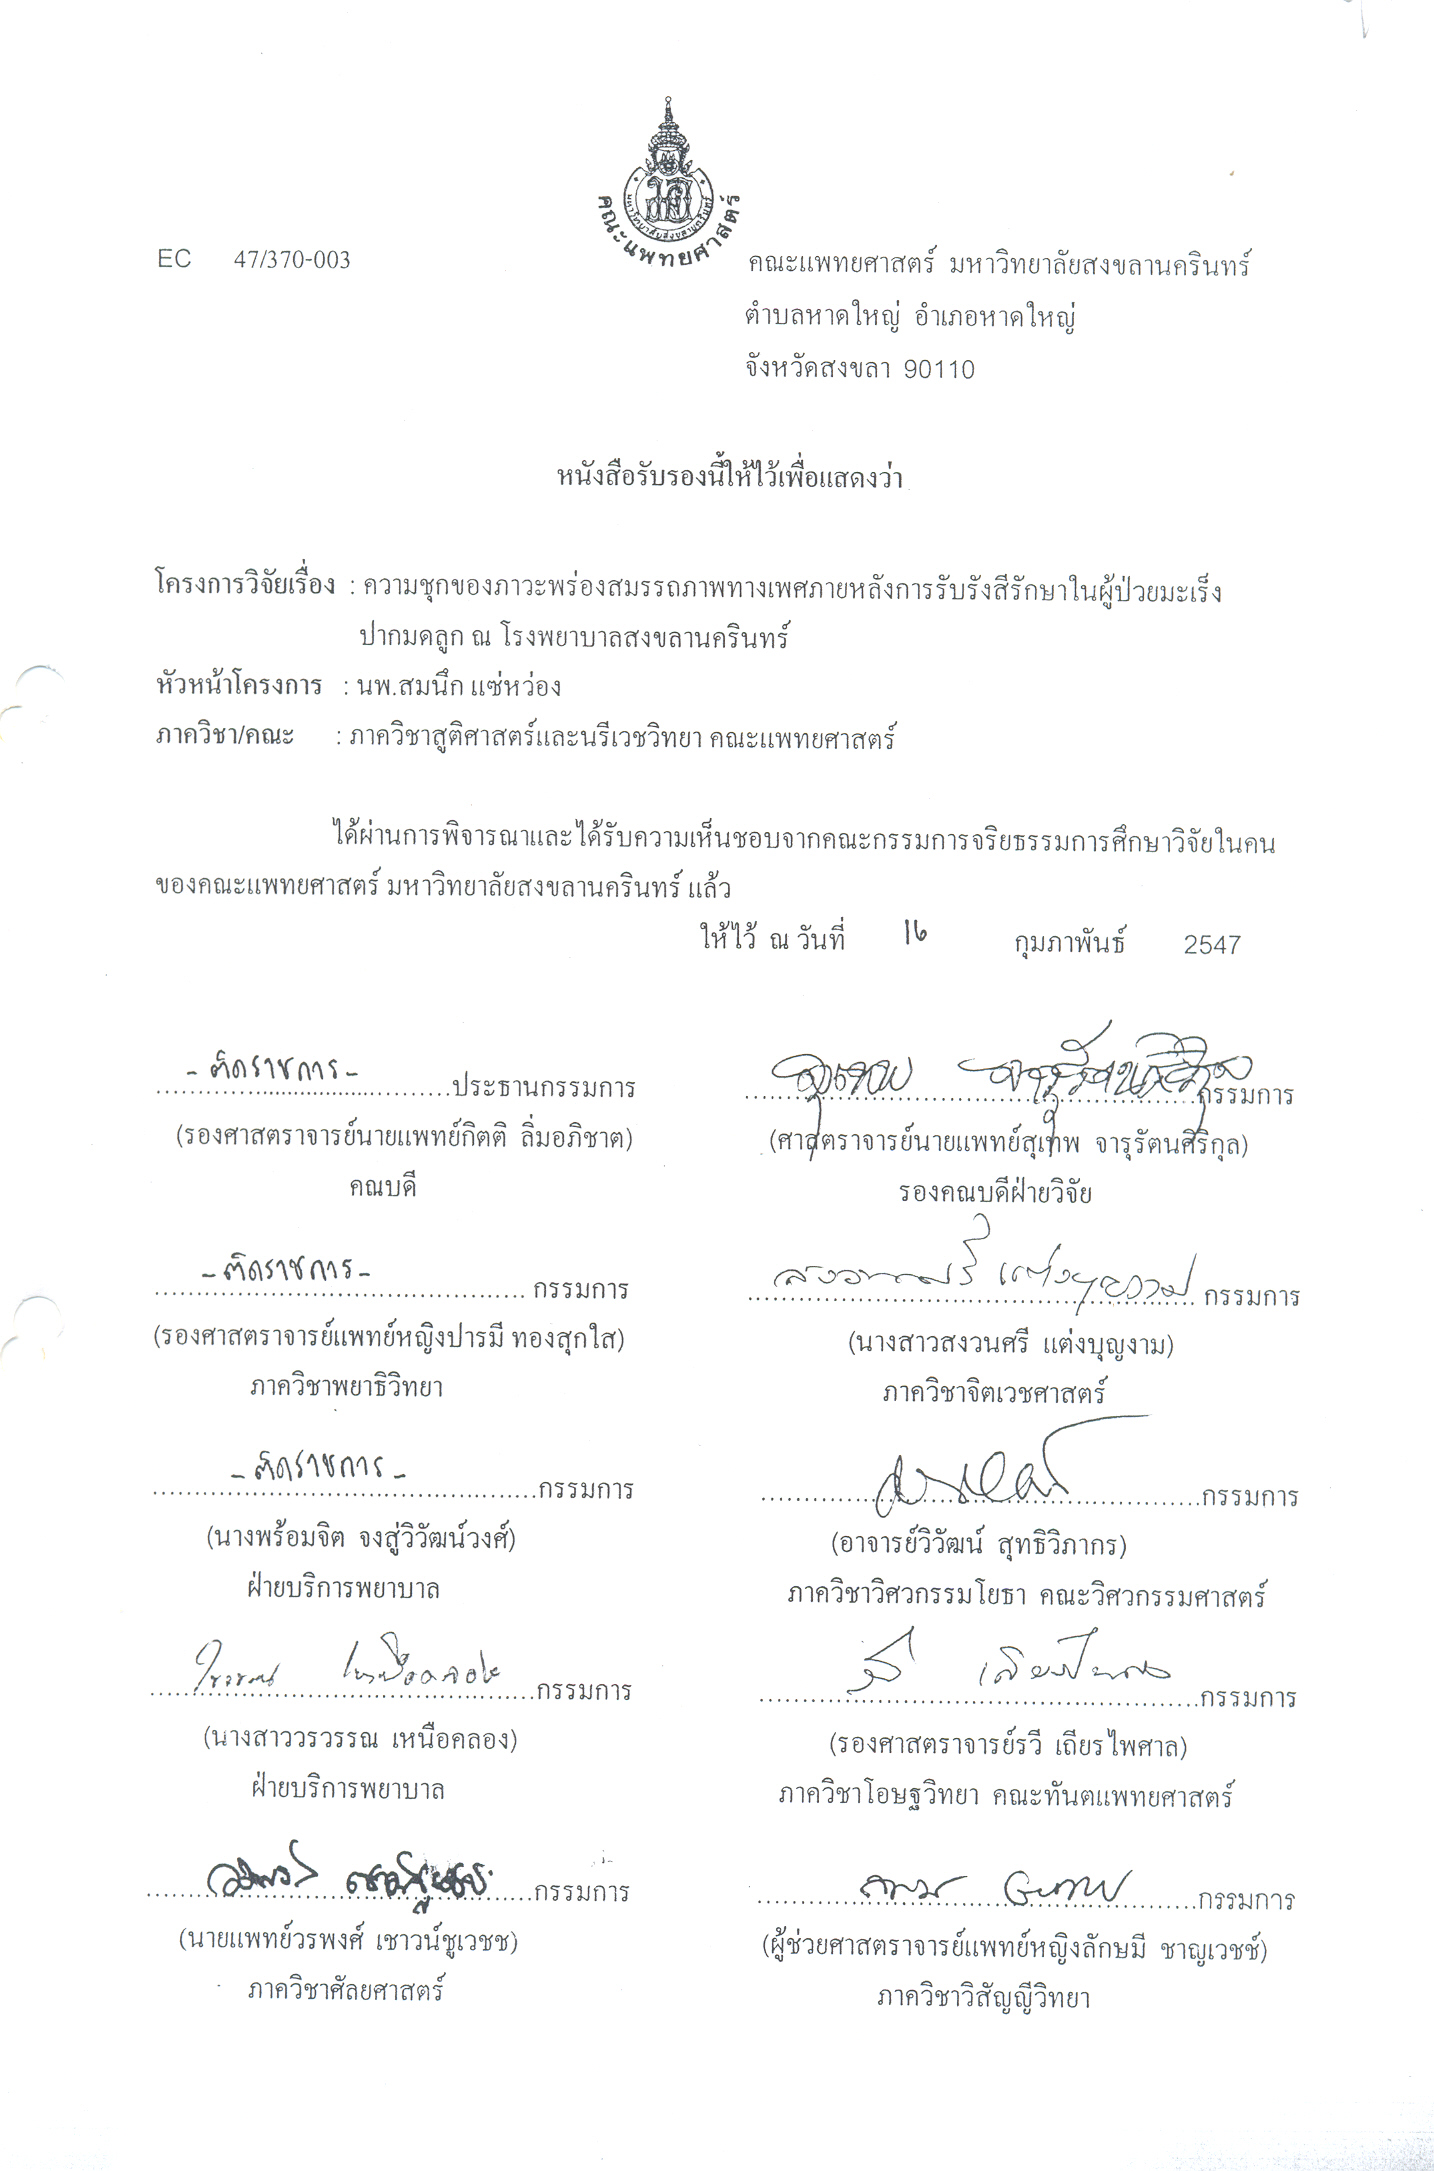 มหาวิทยาลัยสงขลานครินทร์
คณะแพทยศาสตร์
EC 47/370-003
คณะแพทยศาสตร์ มหาวิทยาลัยสงขลานครินทร์
ตำบลหาดใหญ่ อำเภอหาดใหญ่
จังหวัดสงขลา 90110
หนังสือรับรองนี้ให้ไว้เพื่อแสดงว่า
โครงการวิจัยเรื่อง : ความชุกของภาวะพร่องสมรรถภาพทางเพศภายหลังการรับรังสีรักษาในผู้ป่วยมะเร็ง
ปากมดลูก ณ โรงพยาบาลสงขลานครินทร์
หัวหน้าโครงการ : นพ.สมนึก แซ่หว่อง
ภาควิชา/คณะ : ภาควิชาสูติศาสตร์และนรีเวชวิทยา คณะแพทยศาสตร์
ได้ผ่านการพิจารณาและได้รับความเห็นชอบจากคณะกรรมการจริยธรรมการศึกษาวิจัยในคน
ของคณะแพทยศาสตร์ มหาวิทยาลัยสงขลานครินทร์ แล้ว
ให้ไว้ ณ วันที่ 16 กุมภาพันธ์ 2547
- ติดราชการ -
..............................ประธานกรรมการ
(รองศาสตราจารย์นายแพทย์กิตติ ลิ่มอภิชาต)
คณบดี
..............................กรรมการ
(ศาสตราจารย์นายแพทย์สุเทพ จารุรัตนศิริกุล)
รองคณบดีฝ่ายวิจัย
- ติดราชการ -
.............................. กรรมการ
(รองศาสตราจารย์แพทย์หญิงปารมี ทองสุกใส)
ภาควิชาพยาธิวิทยา
.............................. กรรมการ
(นางสาวสงวนศรี แต่งบุญงาม)
ภาควิชาจิตเวชศาสตร์
- ติดราชการ -
..............................กรรมการ
(นางพร้อมจิต จงสู่วิวัฒน์วงศ์)
ฝ่ายบริการพยาบาล
..............................กรรมการ
(อาจารย์วิวัฒน์ สุทธิวิภากร)
ภาควิชาวิศวกรรมโยธา คณะวิศวกรรมศาสตร์
..............................กรรมการ
(นางสาววรวรรณ เหนือคลอง)
ฝ่ายบริการพยาบาล
..............................กรรมการ
(รองศาสตราจารย์รวี เถียรไพศาล)
ภาควิชาโอษฐวิทยา คณะทันตแพทยศาสตร์
..............................กรรมการ
(นายแพทย์วรพงศ์ เชาวน์ชูเวชช)
ภาควิชาศัลยศาสตร์
..............................กรรมการ
(ผู้ช่วยศาสตราจารย์แพทย์หญิงลักษมี ชาญเวชช์)
ภาควิชาวิสัญญีวิทยา